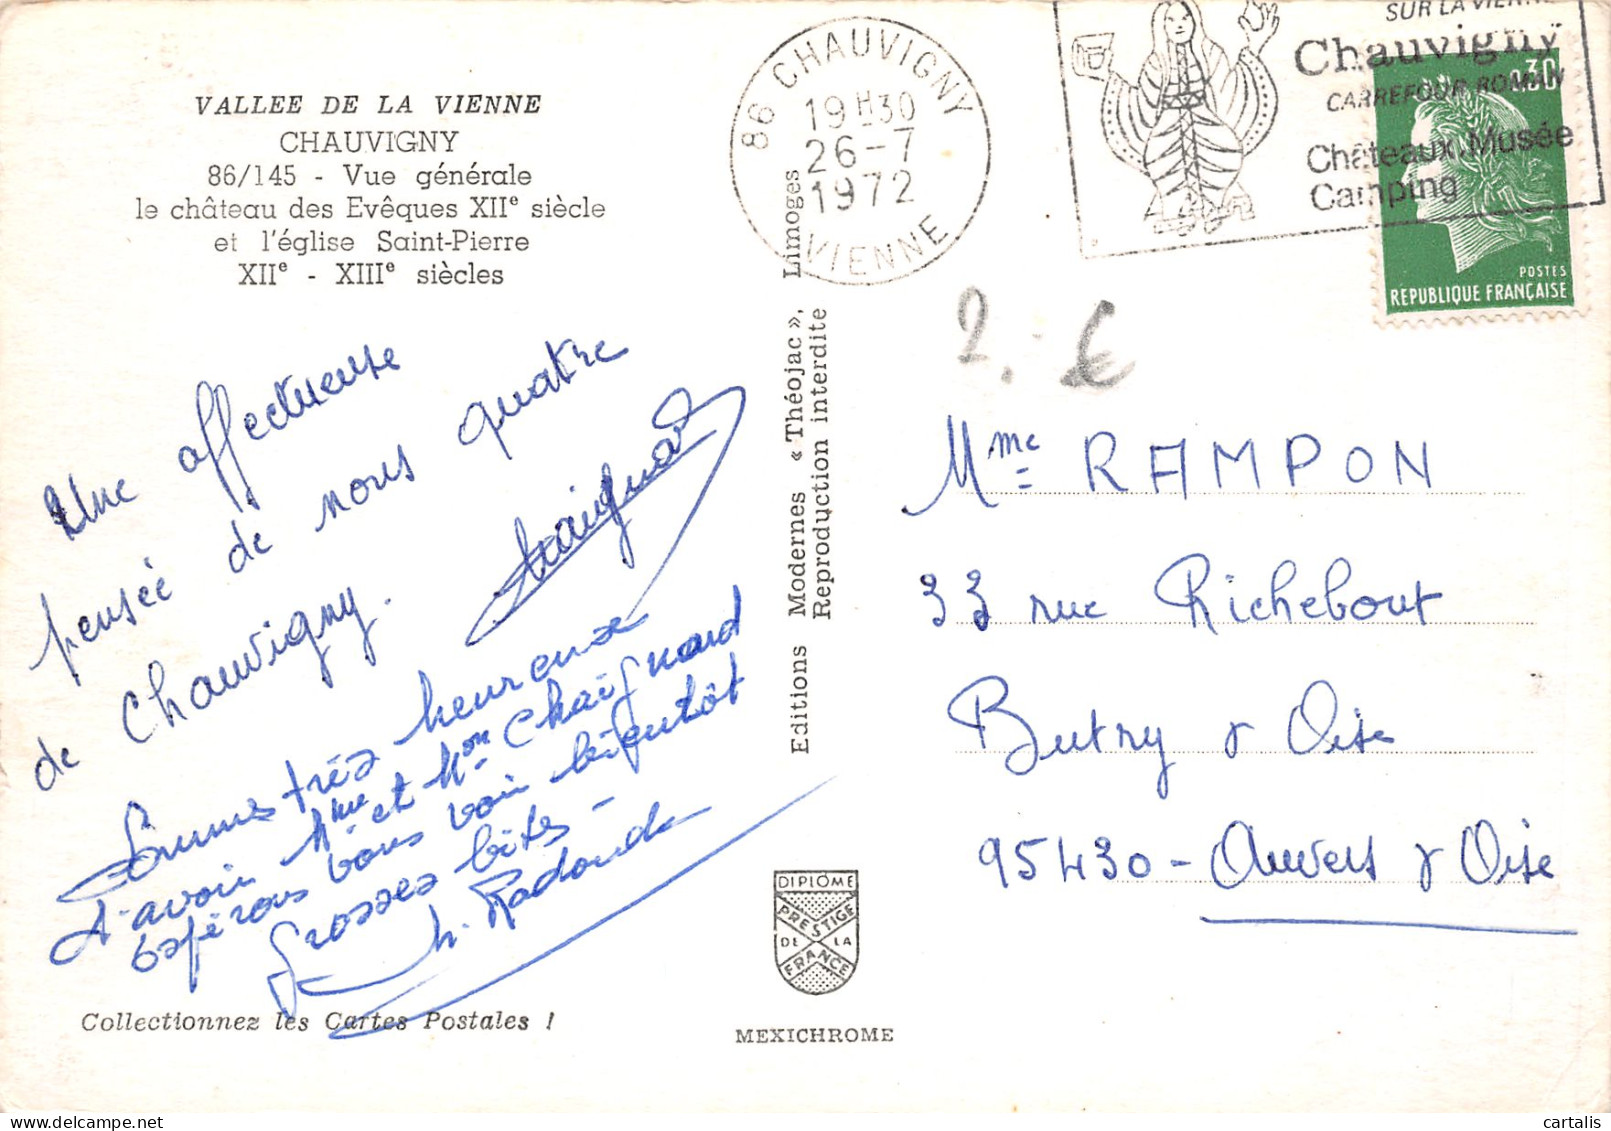 VALLEE DE LA VIENNE
CHAUVIGNY
86/145 - Vue générale
le château des Evêques XIIe siècle
et l'église Saint-Pierre
XIIe - XIIIe siècles
Une affectueuse
pensée de nous quatre
de Chauvigny.
Sommes très heureux
d'avoir Mme et Mon Chaignard
espérons vous voir bientôt
Grosses bites -
Collectionnez les Cartes Postales !
Editions Modernes « Théojac », Limoges
Reproduction interdite
DIPLOME
PRESTIGE
DE LA
FRANCE
MEXICHROME
86 CHAUVIGNY
19H30
26-7
1972
VIENNE
SUR LA VIENNE
Chauvigny
CARREFOUR ROMAN
Châteaux, Musée
Camping
0,30
POSTES
RÉPUBLIQUE FRANÇAISE
2.- €
Mme RAMPON
33 rue Richebout
Butry s/ Oise
95430 - Auvers s/ Oise
cartalis